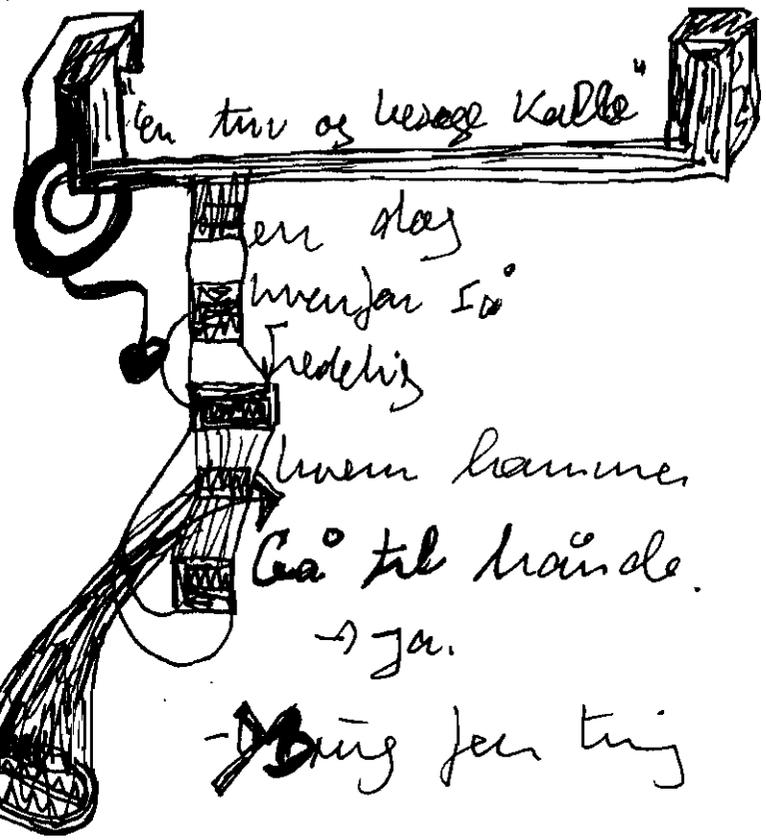 "En tur og besøge Kalle"
en dag
hvorfor så
Fredelig
hvem kommer
Gå til hånde.
→ ja.
- Brug fem ting